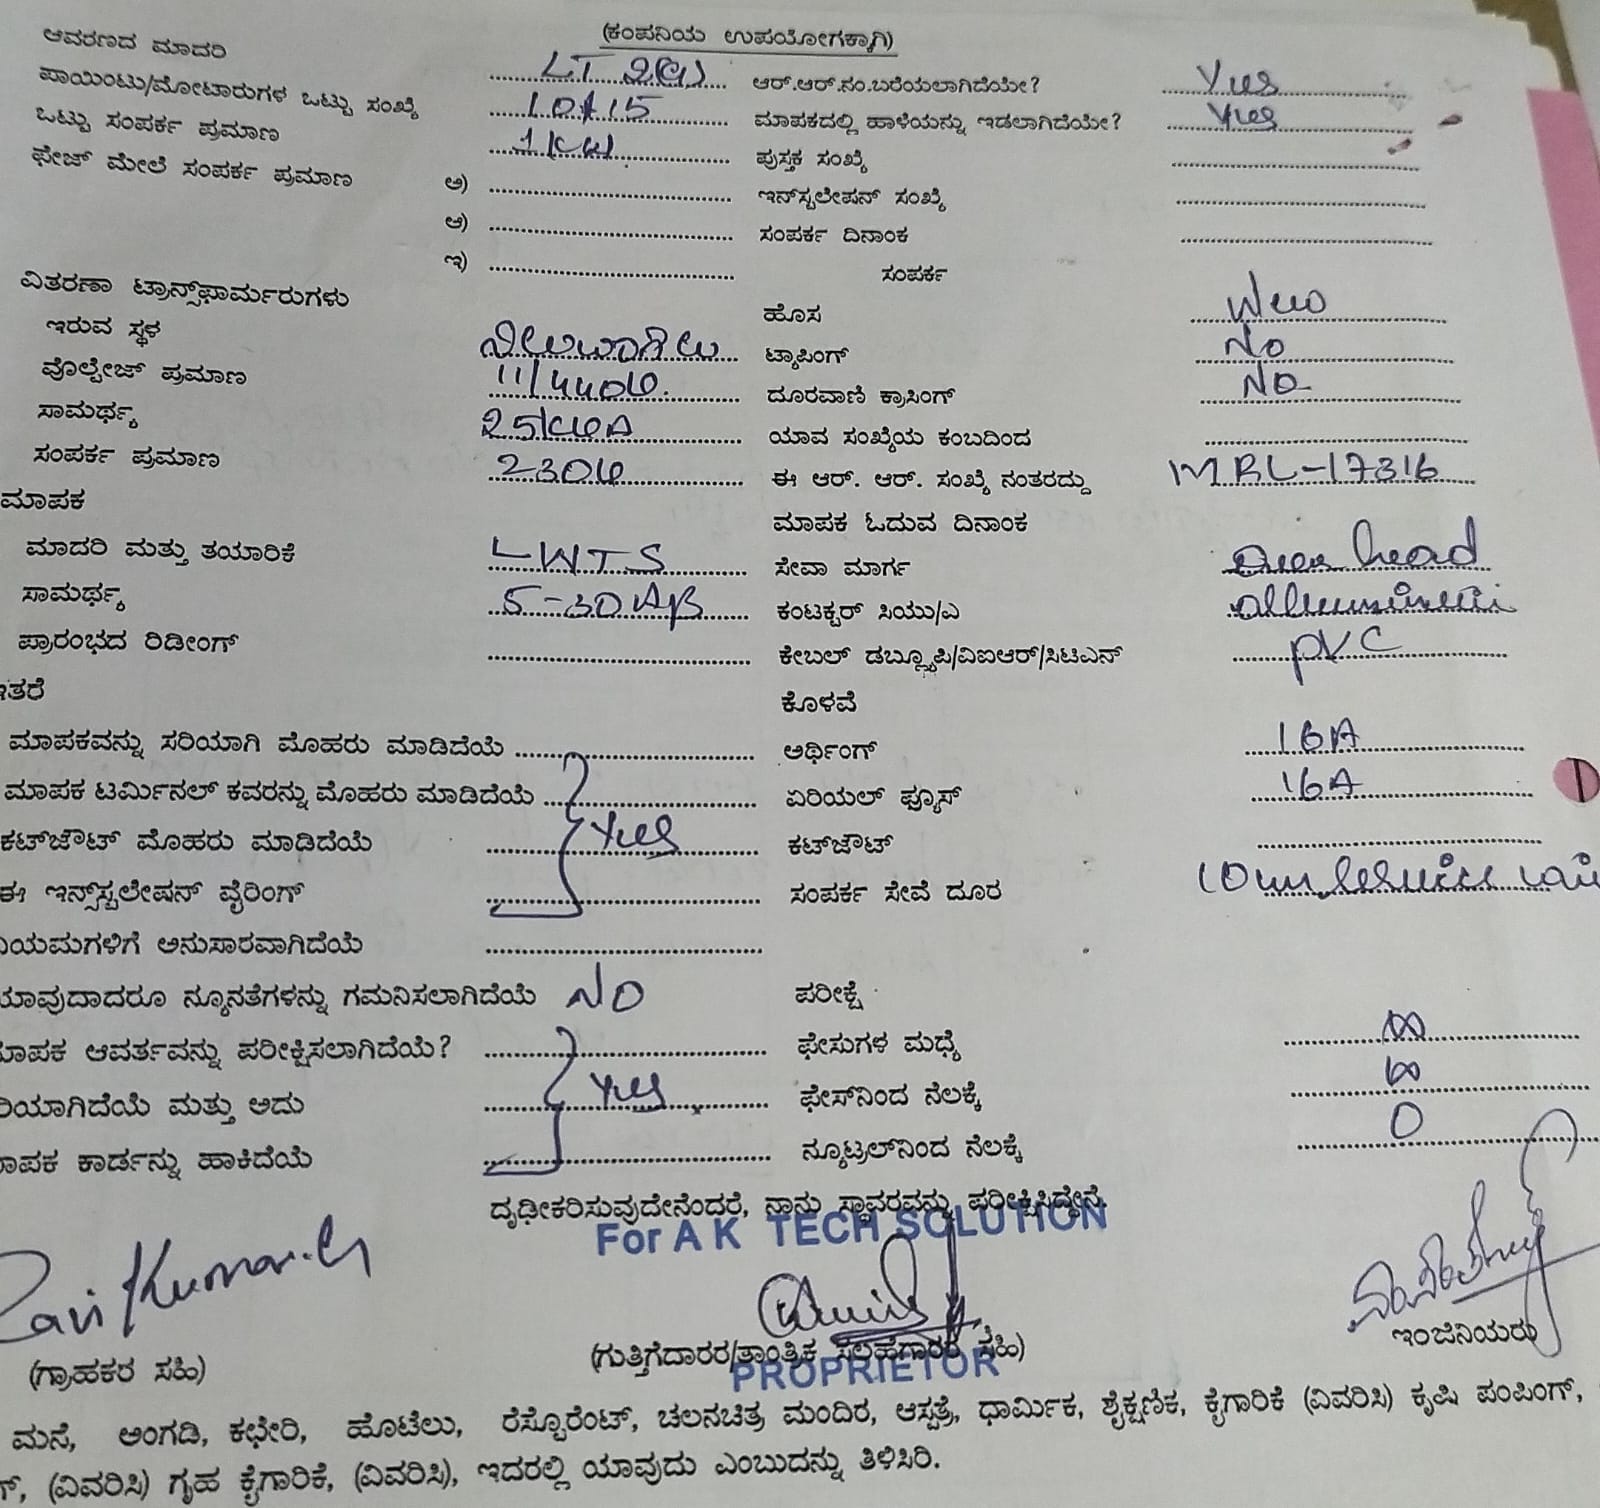 (ಕಂಪನಿಯ ಉಪಯೋಗಕ್ಕಾಗಿ)
ಆವರಣದ ಮಾದರಿ LT ಆರ್.ಆರ್.ನಂ.ಬರೆಯಲಾಗಿದೆಯೇ? Yes
ಪಾಯಿಂಟು/ಮೋಟಾರುಗಳ ಒಟ್ಟು ಸಂಖ್ಯೆ ಮಾಪಕದಲ್ಲಿ ಹಾಳೆಯನ್ನು ಇಡಲಾಗಿದೆಯೇ? Yes
ಒಟ್ಟು ಸಂಪರ್ಕ ಪ್ರಮಾಣ 1KW ಪುಸ್ತಕ ಸಂಖ್ಯೆ
ಫೇಜ್ ಮೇಲೆ ಸಂಪರ್ಕ ಪ್ರಮಾಣ ಅ) ಇನ್‌ಸ್ಟಲೇಷನ್ ಸಂಖ್ಯೆ
ಆ) ಸಂಪರ್ಕ ದಿನಾಂಕ
ಇ) ಸಂಪರ್ಕ
ವಿತರಣಾ ಟ್ರಾನ್ಸ್‌ಫಾರ್ಮರುಗಳು ಹೊಸ
ಇರುವ ಸ್ಥಳ ನಿಲುವಾಗಿಲು ಟ್ಯಾಪಿಂಗ್ No
ವೊಲ್ಟೇಜ್ ಪ್ರಮಾಣ 11/440V. ದೂರವಾಣಿ ಕ್ರಾಸಿಂಗ್ NO
ಸಾಮರ್ಥ್ಯ 25KVA ಯಾವ ಸಂಖ್ಯೆಯ ಕಂಬದಿಂದ
ಸಂಪರ್ಕ ಪ್ರಮಾಣ 230V ಈ ಆರ್. ಆರ್. ಸಂಖ್ಯೆ ನಂತರದ್ದು MBL-17316
ಮಾಪಕ ಮಾಪಕ ಓದುವ ದಿನಾಂಕ
ಮಾದರಿ ಮತ್ತು ತಯಾರಿಕೆ LWTS ಸೇವಾ ಮಾರ್ಗ Over head
ಸಾಮರ್ಥ್ಯ 5-30 ಕಂಟಕ್ಟರ್ ಸಿಯು/ಎ
ಪ್ರಾರಂಭದ ರಿಡೀಂಗ್ ಕೇಬಲ್ ಡಬ್ಲ್ಯೂಪಿ/ವಿಐಆರ್/ಸಿಟಿಎನ್ PVC
ಇತರೆ ಕೊಳವೆ
ಮಾಪಕವನ್ನು ಸರಿಯಾಗಿ ಮೊಹರು ಮಾಡಿದೆಯೆ ಅರ್ಥಿಂಗ್ 16A
ಮಾಪಕ ಟರ್ಮಿನಲ್ ಕವರನ್ನು ಮೊಹರು ಮಾಡಿದೆಯೆ ಏರಿಯಲ್ ಫ್ಯೂಸ್ 16A
ಕಟ್‌ಔಟ್ ಮೊಹರು ಮಾಡಿದೆಯೆ Yes ಕಟ್‌ಔಟ್
ಈ ಇನ್ಸ್‌ಸ್ಟಲೇಷನ್ ವೈರಿಂಗ್ ಸಂಪರ್ಕ ಸೇವೆ ದೂರ
ನಿಯಮಗಳಿಗೆ ಅನುಸಾರವಾಗಿದೆಯೆ
ಯಾವುದಾದರೂ ನ್ಯೂನತೆಗಳನ್ನು ಗಮನಿಸಲಾಗಿದೆಯೆ NO ಪರೀಕ್ಷೆ
ಮಾಪಕ ಆವರ್ತವನ್ನು ಪರೀಕ್ಷಿಸಲಾಗಿದೆಯೆ? ಫೇಸುಗಳ ಮಧ್ಯೆ ∞
ರಿಯಾಗಿದೆಯೆ ಮತ್ತು ಅದು Yes ಫೇಸ್‌ನಿಂದ ನೆಲಕ್ಕೆ ∞
ಮಾಪಕ ಕಾರ್ಡನ್ನು ಹಾಕಿದೆಯೆ ನ್ಯೂಟ್ರಲ್‌ನಿಂದ ನೆಲಕ್ಕೆ 0
ದೃಢೀಕರಿಸುವುದೇನೆಂದರೆ, ನಾನು ಸ್ಥಾವರವನ್ನು ಪರೀಕ್ಷಿಸಿದ್ದೇನೆ.
For A K TECH SOLUTION
Ravi Kumar
(ಗ್ರಾಹಕರ ಸಹಿ) (ಗುತ್ತಿಗೆದಾರರ/ತಾಂತ್ರಿಕ ಸಲಹೆಗಾರರ ಸಹಿ) ಇಂಜಿನಿಯರು
PROPRIETOR
ಮನೆ, ಅಂಗಡಿ, ಕಛೇರಿ, ಹೊಟೆಲು, ರೆಸ್ಟೊರೆಂಟ್, ಚಲನಚಿತ್ರ ಮಂದಿರ, ಆಸ್ಪತ್ರೆ, ಧಾರ್ಮಿಕ, ಶೈಕ್ಷಣಿಕ, ಕೈಗಾರಿಕೆ (ವಿವರಿಸಿ) ಕೃಷಿ ಪಂಪಿಂಗ್,
ಗ್, (ವಿವರಿಸಿ) ಗೃಹ ಕೈಗಾರಿಕೆ, (ವಿವರಿಸಿ), ಇದರಲ್ಲಿ ಯಾವುದು ಎಂಬುದನ್ನು ತಿಳಿಸಿರಿ.